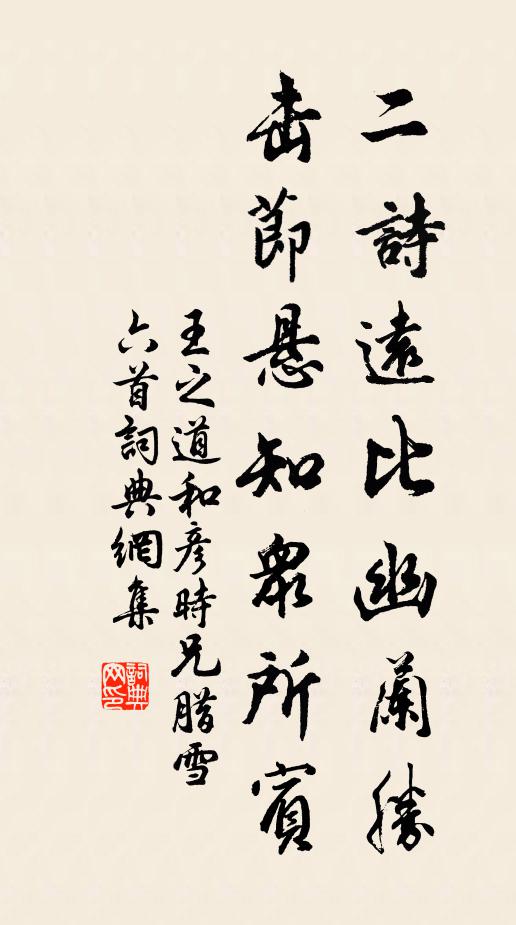 二詩遠比幽蘭勝
击節懸知衆所賓
王之道和彦時兄腊雪
六首詞典網集
詞典
网印